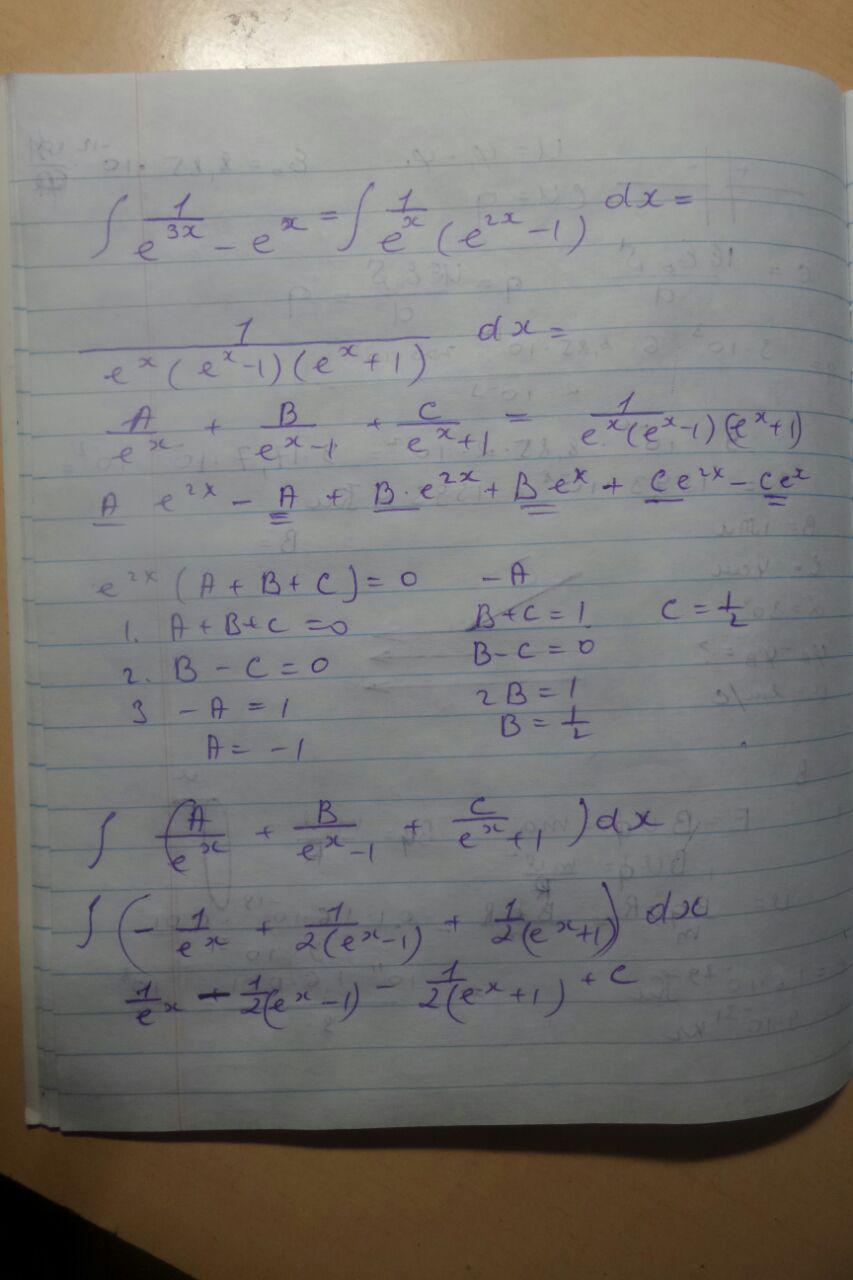 ∫ 1/(e^{3x} - e^x) = ∫ 1/(e^x (e^{2x} - 1)) dx =
1/(e^x (e^x - 1)(e^x + 1)) dx =
A/e^x + B/(e^x - 1) + C/(e^x + 1) = 1/(e^x (e^x - 1)(e^x + 1))
A e^{2x} - A + B · e^{2x} + B e^x + C e^{2x} - C e^x
e^{2x} (A + B + C) = 0 - A
1. A + B + C = 0 B + C = 1 C = 1/2
2. B - C = 0 B - C = 0
3 - A = 1 2B = 1
A = -1 B = 1/2
∫ (A/e^x + B/(e^x - 1) + C/(e^x + 1)) dx
∫ (- 1/e^x + 1/(2(e^x - 1)) + 1/(2(e^x + 1))) dx
1/e^x - 1/(2(e^x - 1)) - 1/(2(e^x + 1)) + C